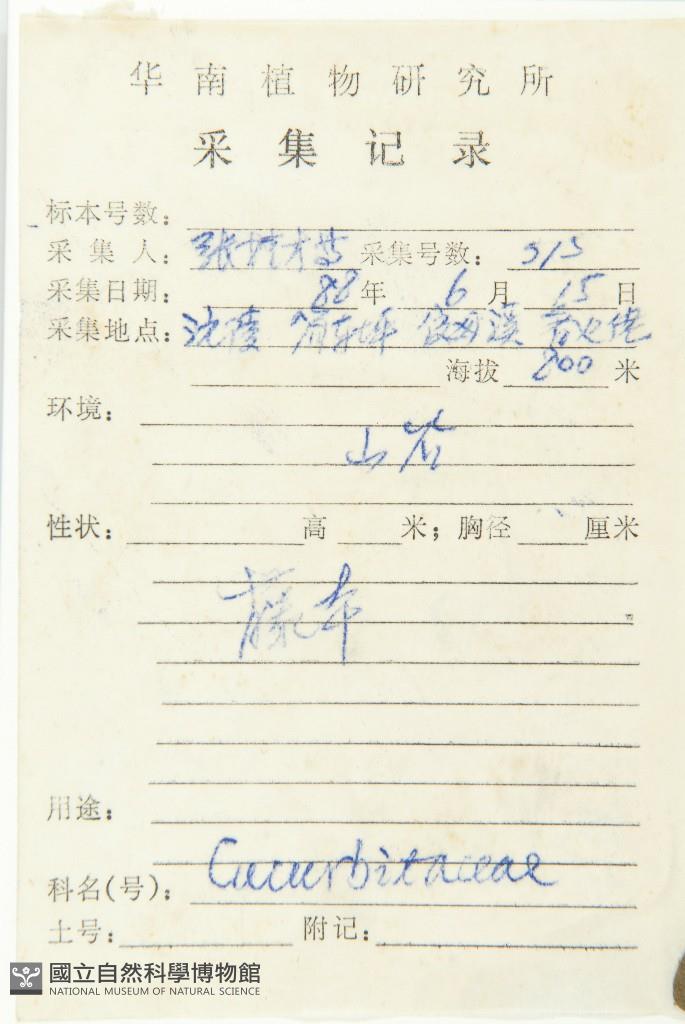 华南植物研究所
采集记录
标本号数:
采集人: 张 采集号数: 515
采集日期: 88年 6月 15日
采集地点: 沈陵
海拔 800 米
环境:
山谷
性状: 高 米; 胸径 厘米
藤本
用途:
Cucurbitaceae
科名(号):
土号: 附记:
國立自然科學博物館
NATIONAL MUSEUM OF NATURAL SCIENCE